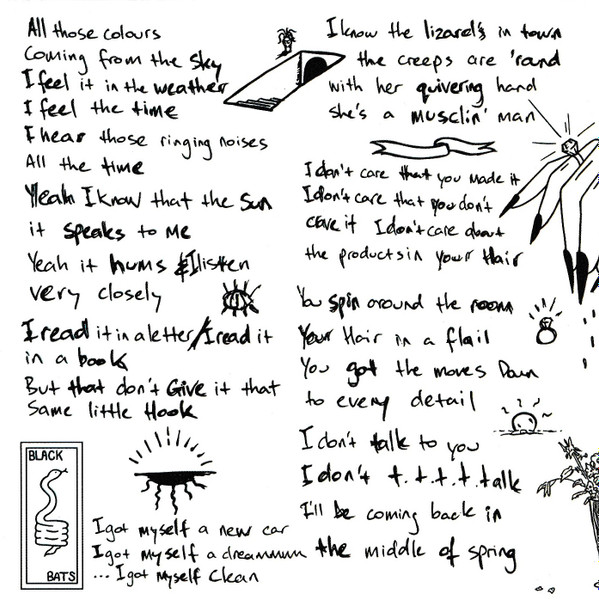 All those colours
Coming from the sky
I feel it in the weather
I feel the time
I hear those ringing noises
All the time
Yeah I know that the Sun
it speaks to me
Yeah it hums & I listen
very closely
I read it in a letter/I read it
in a book
But that don't Give it that
Same little Hook
BLACK
BATS
I got myself a new car
I got myself a dreammum
... I got myself Clean
I know the lizard's in town
the creeps are 'round
with her quivering hand
she's a musclin' man
I don't care that you made it
I don't care that you don't
crave it I don't care about
the products in your Hair
You spin around the room
Your Hair in a flail
You got the moves Down
to every detail
I don't talk to you
I don't t.t.t.t.talk
I'll be coming back in
the middle of spring